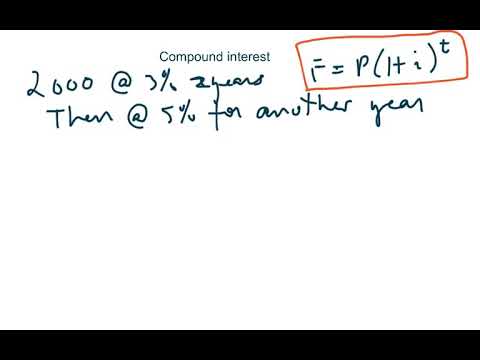 Compound interest
F = P(1+i)^t
2000 @ 3% 2years
Then @ 5% for another year